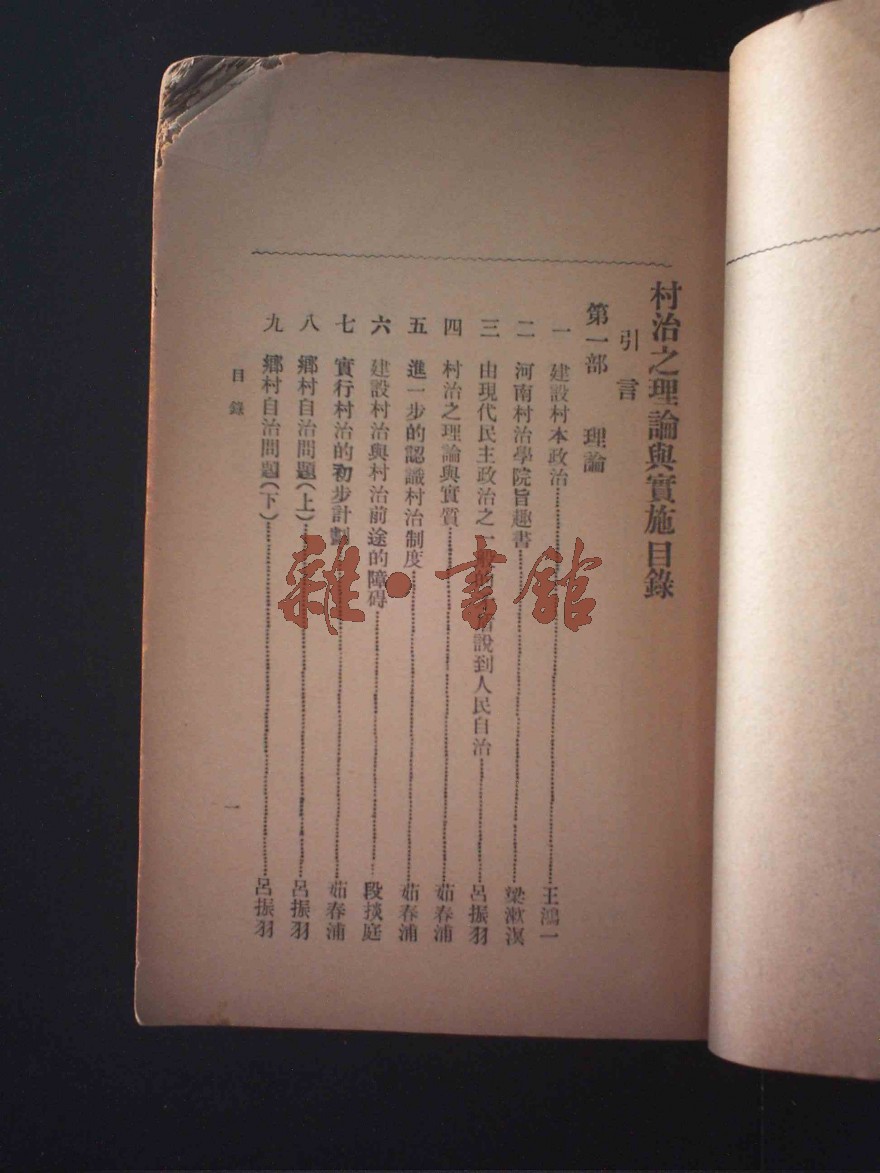 村治之理論與實施目錄
引言
第一部 理論
一 建設村本政治 王鴻一
二 河南村治學院旨趣書 梁漱溟
三 由現代民主政治之一般的 說到人民自治 呂振羽
四 村治之理論與實質 茹春浦
五 進一步的認識村治制度 茹春浦
六 建設村治與村治前途的障碍 段揆庭
七 實行村治的初步計劃 茹春浦
八 鄉村自治問題(上) 呂振羽
九 鄉村自治問題(下) 呂振羽
目錄
一
雜·書館